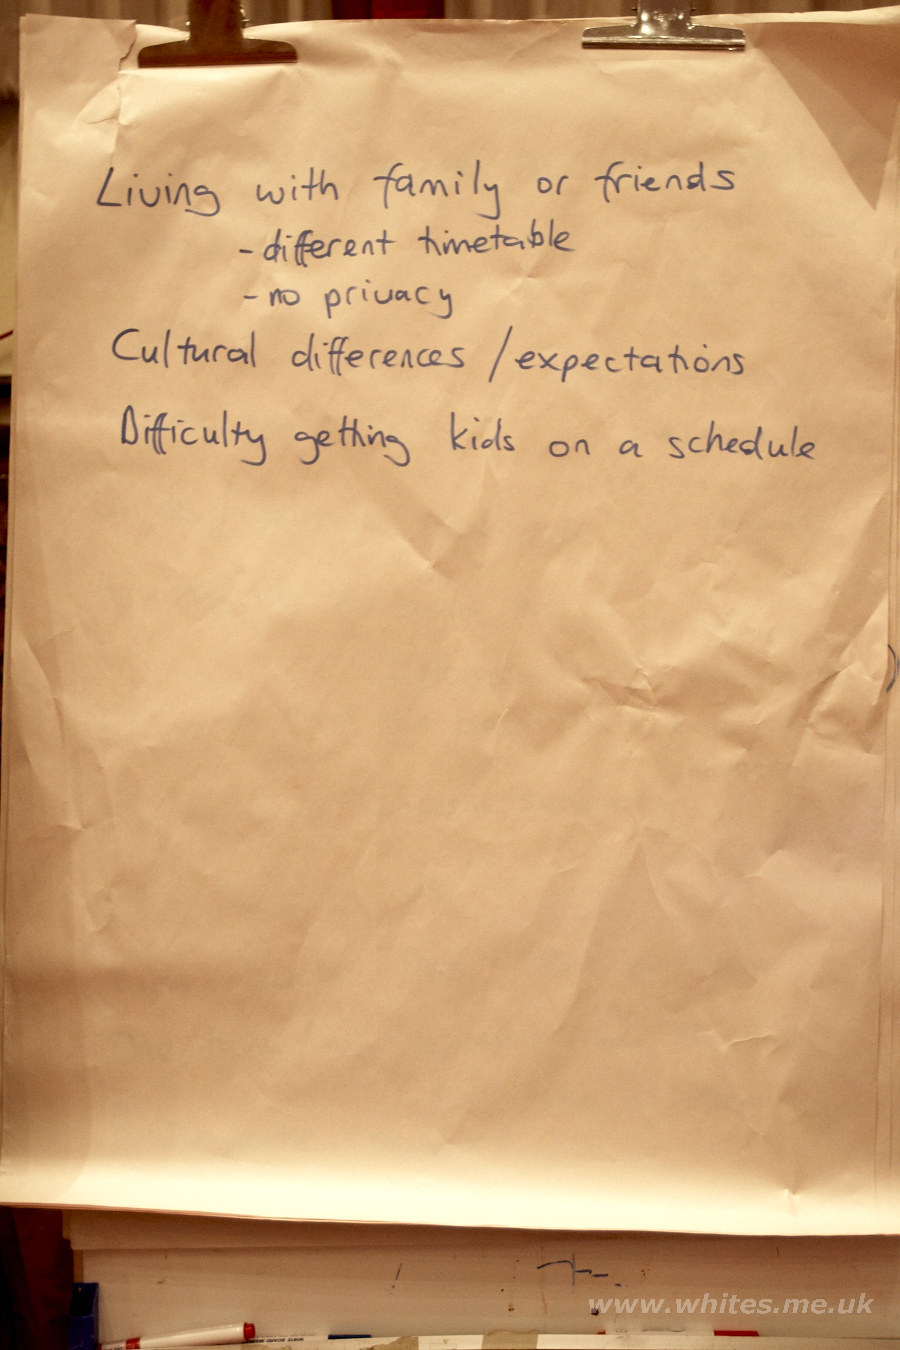 Living with family or friends
- different timetable
- no privacy
Cultural differences / expectations
Difficulty getting kids on a schedule
www.whites.me.uk